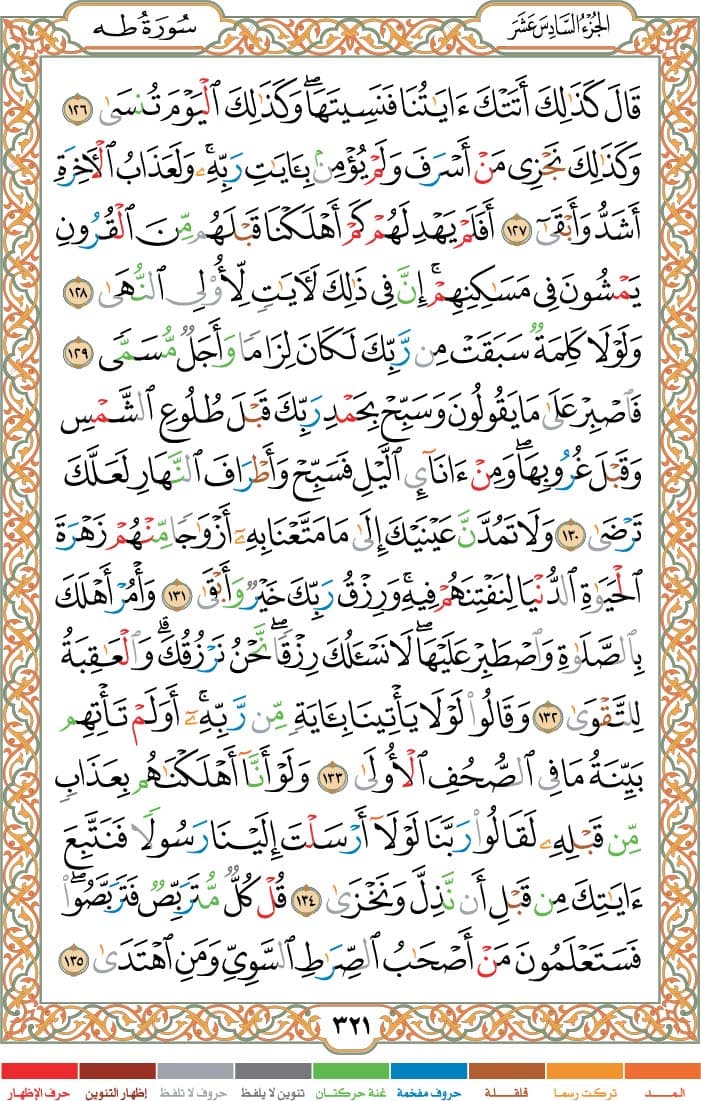 الجزء السادس عشر
سورة طه
قَالَ كَذَٰلِكَ أَتَتْكَ ءَايَٰتُنَا فَنَسِيتَهَاۖ وَكَذَٰلِكَ ٱلْيَوْمَ تُنسَىٰ ١٢٦
وَكَذَٰلِكَ نَجْزِى مَنْ أَسْرَفَ وَلَمْ يُؤْمِنۢ بِـَٔايَٰتِ رَبِّهِۦۚ وَلَعَذَابُ ٱلْءَاخِرَةِ
أَشَدُّ وَأَبْقَىٰٓ ١٢٧ أَفَلَمْ يَهْدِ لَهُمْ كَمْ أَهْلَكْنَا قَبْلَهُم مِّنَ ٱلْقُرُونِ
يَمْشُونَ فِى مَسَٰكِنِهِمْۚ إِنَّ فِى ذَٰلِكَ لَءَايَٰتٍ لِّأُو۟لِى ٱلنُّهَىٰ ١٢٨
وَلَوْلَا كَلِمَةٌ سَبَقَتْ مِن رَّبِّكَ لَكَانَ لِزَامًا وَأَجَلٌ مُّسَمًّى ١٢٩
فَٱصْبِرْ عَلَىٰ مَا يَقُولُونَ وَسَبِّحْ بِحَمْدِ رَبِّكَ قَبْلَ طُلُوعِ ٱلشَّمْسِ
وَقَبْلَ غُرُوبِهَاۖ وَمِنْ ءَانَآئِ ٱلَّيْلِ فَسَبِّحْ وَأَطْرَافَ ٱلنَّهَارِ لَعَلَّكَ
تَرْضَىٰ ١٣٠ وَلَا تَمُدَّنَّ عَيْنَيْكَ إِلَىٰ مَا مَتَّعْنَا بِهِۦٓ أَزْوَٰجًا مِّنْهُمْ زَهْرَةَ
ٱلْحَيَوٰةِ ٱلدُّنْيَا لِنَفْتِنَهُمْ فِيهِۚ وَرِزْقُ رَبِّكَ خَيْرٌ وَأَبْقَىٰ ١٣١ وَأْمُرْ أَهْلَكَ
بِٱلصَّلَوٰةِ وَٱصْطَبِرْ عَلَيْهَاۖ لَا نَسْـَٔلُكَ رِزْقًاۖ نَّحْنُ نَرْزُقُكَۗ وَٱلْعَٰقِبَةُ
لِلتَّقْوَىٰ ١٣٢ وَقَالُوا۟ لَوْلَا يَأْتِينَا بِـَٔايَةٍ مِّن رَّبِّهِۦٓۚ أَوَلَمْ تَأْتِهِم
بَيِّنَةُ مَا فِى ٱلصُّحُفِ ٱلْأُولَىٰ ١٣٣ وَلَوْ أَنَّآ أَهْلَكْنَٰهُم بِعَذَابٍ
مِّن قَبْلِهِۦ لَقَالُوا۟ رَبَّنَا لَوْلَآ أَرْسَلْتَ إِلَيْنَا رَسُولًا فَنَتَّبِعَ
ءَايَٰتِكَ مِن قَبْلِ أَن نَّذِلَّ وَنَخْزَىٰ ١٣٤ قُلْ كُلٌّ مُّتَرَبِّصٌ فَتَرَبَّصُوا۟ۖ
فَسَتَعْلَمُونَ مَنْ أَصْحَٰبُ ٱلصِّرَٰطِ ٱلسَّوِىِّ وَمَنِ ٱهْتَدَىٰ ١٣٥
٣٢١
المـــد تركت رسما قلقـلة حروف مفخمة غنة حركتان تنوين لا يلفظ حروف لا تلفظ إظهار التنوين حرف الإظهار